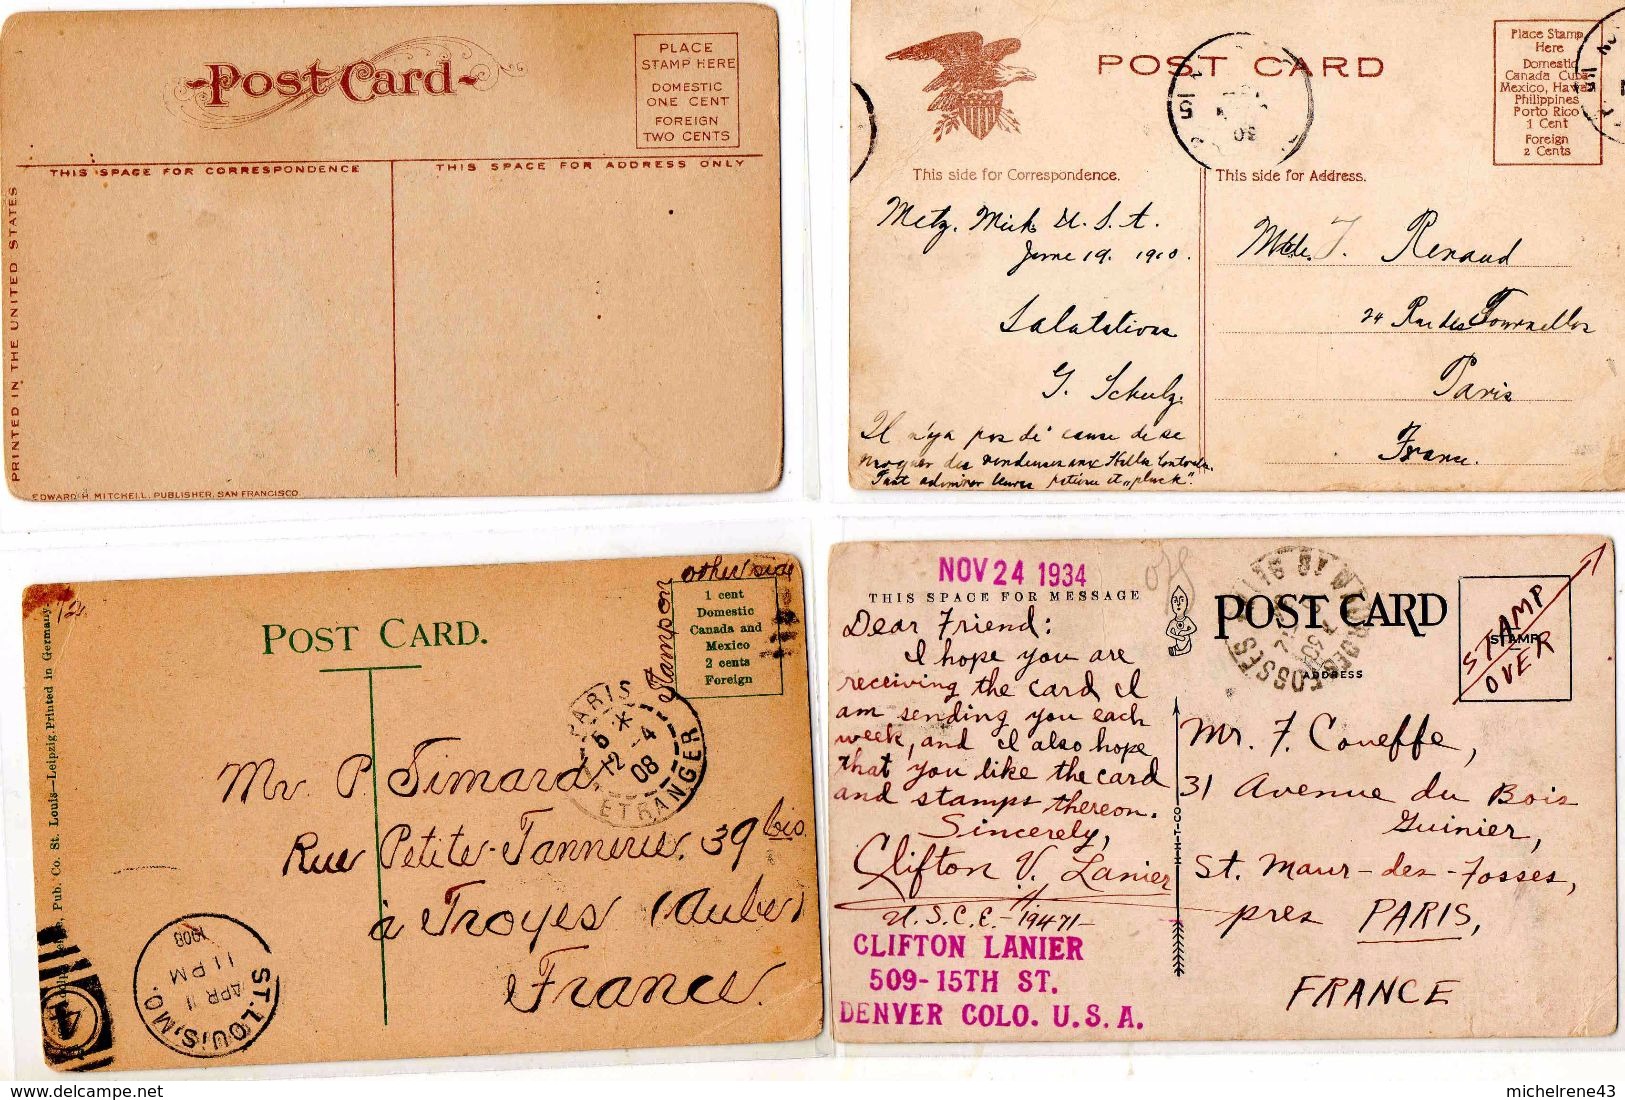 Post Card
PLACE
STAMP HERE
DOMESTIC
ONE CENT
FOREIGN
TWO CENTS
THIS SPACE FOR CORRESPONDENCE
THIS SPACE FOR ADDRESS ONLY
PRINTED IN THE UNITED STATES
EDWARD H. MITCHELL, PUBLISHER, SAN FRANCISCO
POST CARD
Place Stamp
Here
Domestic
Canada Cuba
Mexico, Hawa
Philippines
Porto Rico
1 Cent
Foreign
2 Cents
This side for Correspondence.
This side for Address.
Metz. Mich U. S. A.
June 19. 1910.
Salutations
G. Schulz.
Il n'ya pas de cause de se
moquer des
Tout admirer leurs et "pluck".
Mlle. J. Renaud
24 Rue des Tournelles
Paris
France.
other side
Stamp on
1 cent
Domestic
Canada and
Mexico
2 cents
Foreign
12
POST CARD.
PARIS
12 - 4
08
ETRANGER
Mr P. Simard.
Rue Petite-Tannerie. 39 bis
à Troyes (Aube)
France.
Pub. Co. St. Louis—Leipzig. Printed in Germany.
ST. LOUIS, MO.
APR 1
11 PM
1908
4
NOV 24 1934
THIS SPACE FOR MESSAGE
POST CARD
ADDRESS
STAMP
STAMP
OVER
Dear Friend:
I hope you are
receiving the card I
am sending you each
week, and I also hope
that you like the card
and stamps thereon.
Sincerely,
Clifton V. Lanier
U.S.C.E.- A.19471-
CLIFTON LANIER
509-15TH ST.
DENVER COLO. U.S.A.
Mr. F. Coueffe,
31 Avenue du Bois
Guinier,
St. Maur-des-Fosses,
pres PARIS,
FRANCE
www.delcampe.net
michelrene43